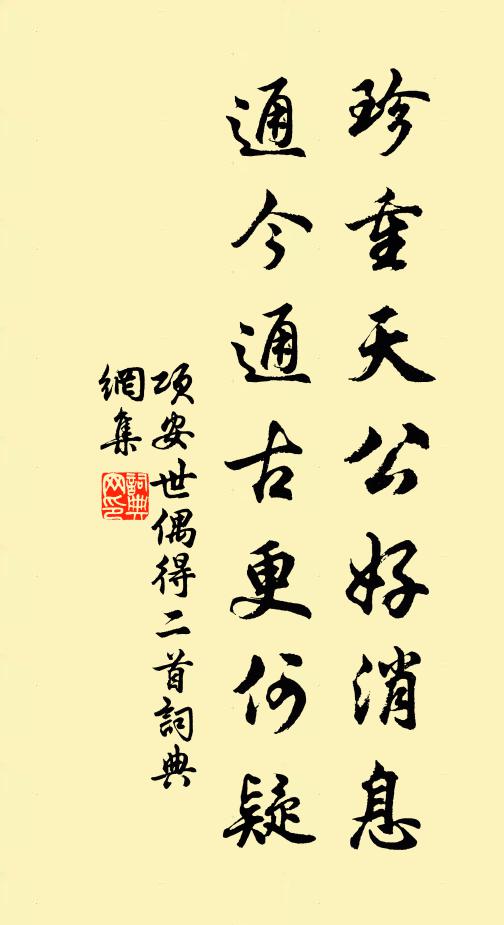 珍重天公好消息
通今通古更何疑
項安世偶得二首詞典
網集
詞典
网印